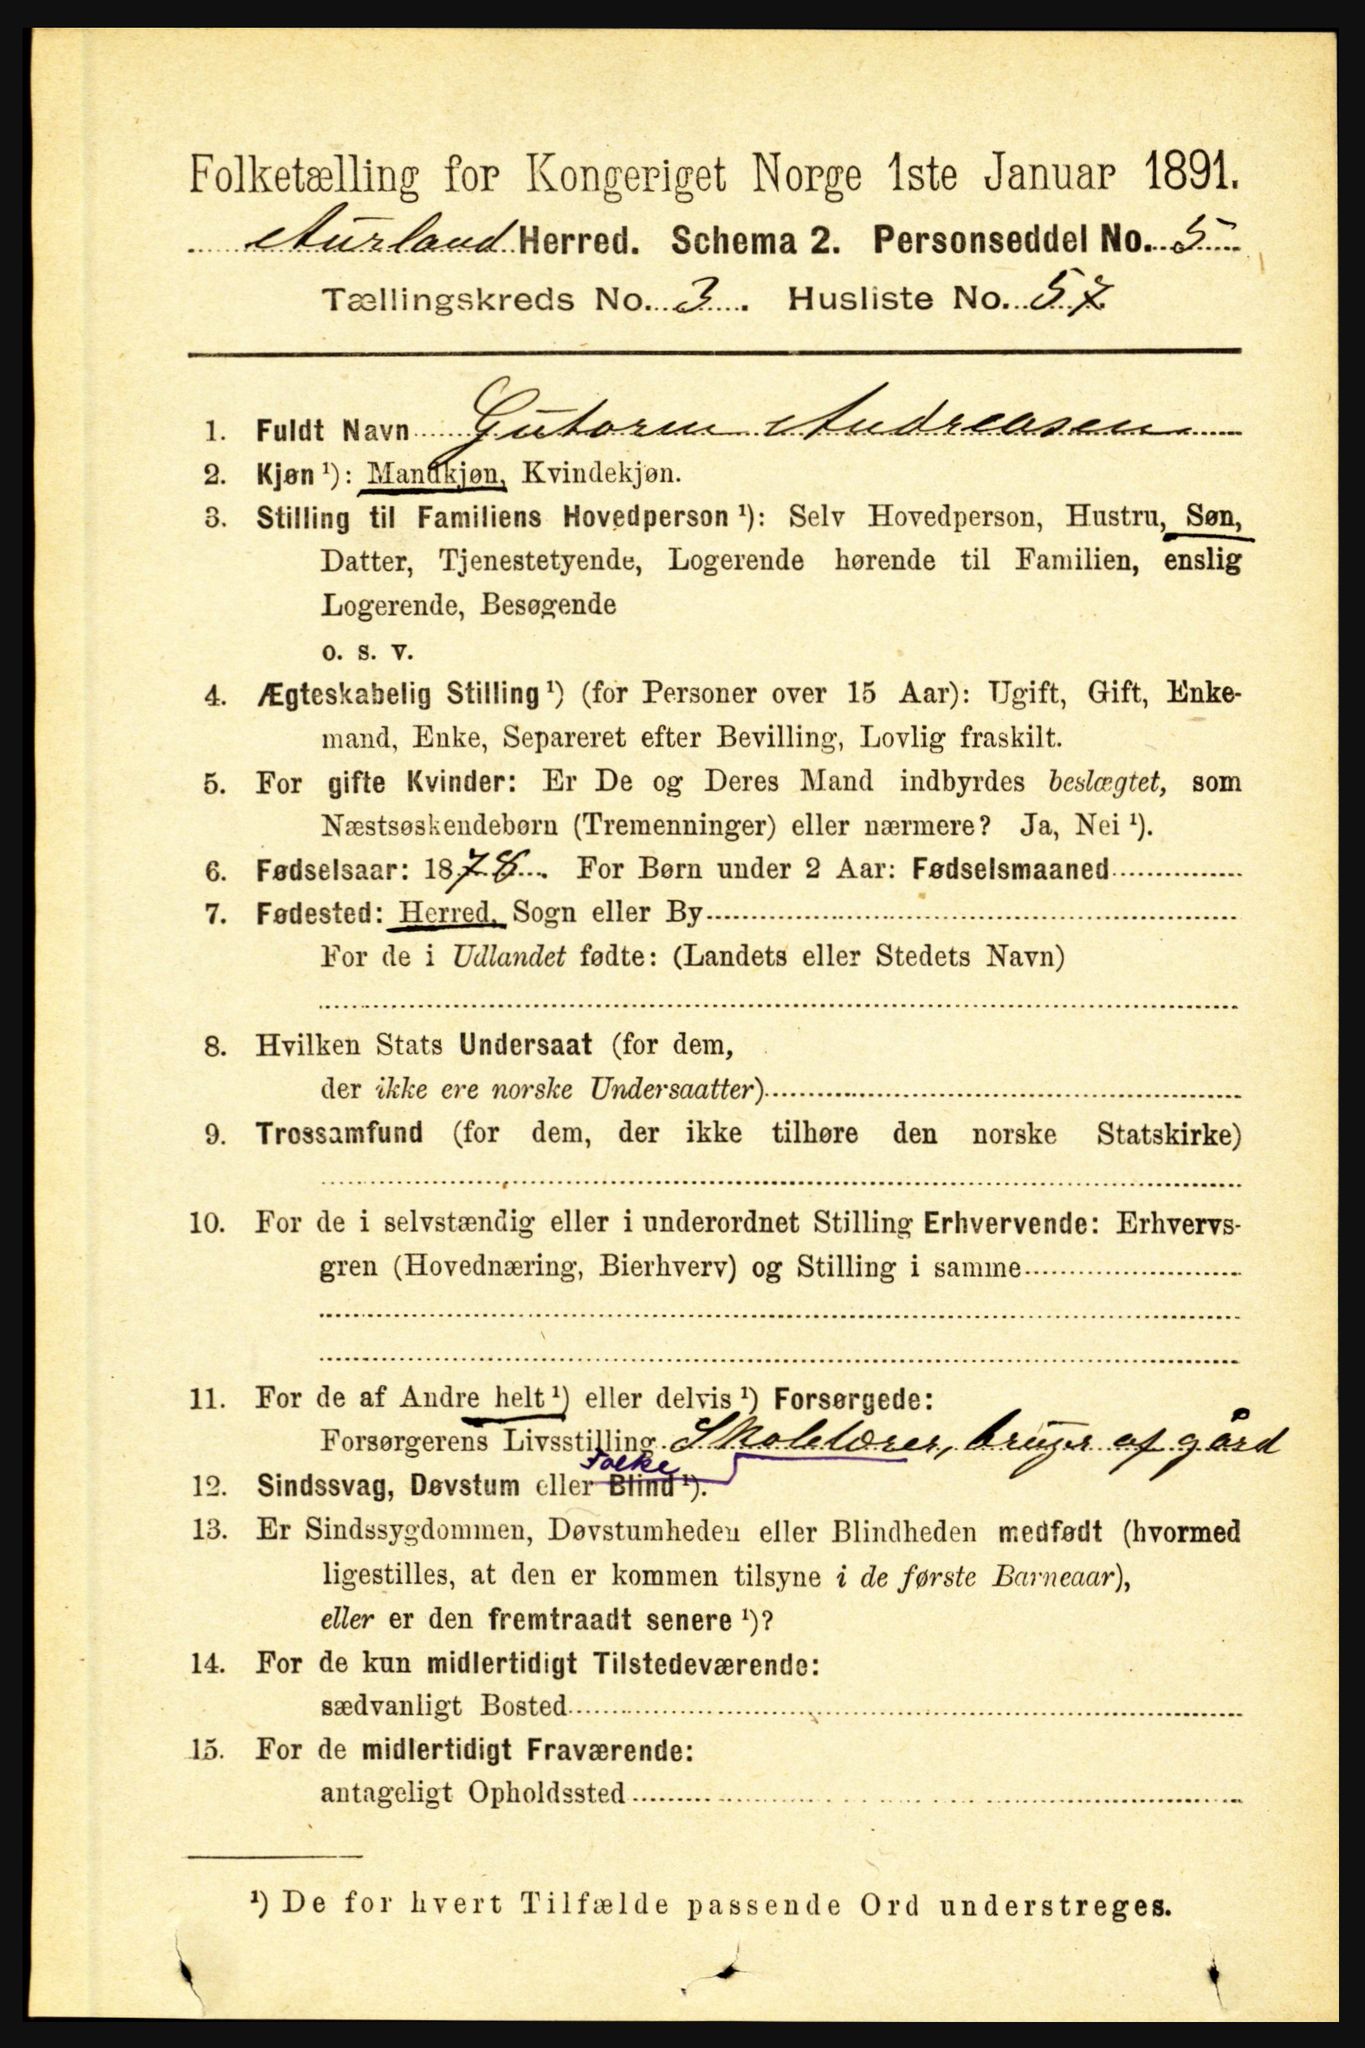 Folketælling for Kongeriget Norge 1ste Januar 1891.
Aurland Herred. Schema 2. Personseddel No. 5
Tællingskreds No. 3. Husliste No. 57.
1. Fuldt Navn Gutorm Andreasen
2. Kjøn ¹): Mandkjøn, Kvindekjøn.
3. Stilling til Familiens Hovedperson ¹): Selv Hovedperson, Hustru, Søn,
Datter, Tjenestetyende, Logerende hørende til Familien, enslig
Logerende, Besøgende
o. s. v.
4. Ægteskabelig Stilling ¹) (for Personer over 15 Aar): Ugift, Gift, Enke-
mand, Enke, Separeret efter Bevilling, Lovlig fraskilt.
5. For gifte Kvinder: Er De og Deres Mand indbyrdes beslægtet, som
Næstsøskendebørn (Tremenninger) eller nærmere? Ja, Nei ¹).
6. Fødselsaar: 1878. For Børn under 2 Aar: Fødselsmaaned
7. Fødested: Herred, Sogn eller By
For de i Udlandet fødte: (Landets eller Stedets Navn)
8. Hvilken Stats Undersaat (for dem,
der ikke ere norske Undersaatter)
9. Trossamfund (for dem, der ikke tilhøre den norske Statskirke)
10. For de i selvstændig eller i underordnet Stilling Erhvervende: Erhvervs-
gren (Hovednæring, Bierhverv) og Stilling i samme
11. For de af Andre helt ¹) eller delvis ¹) Forsørgede:
Forsørgerens Livsstilling Skolelærer, bruger af gård
Folke
12. Sindssvag, Døvstum eller Blind ¹).
13. Er Sindssygdommen, Døvstumheden eller Blindheden medfødt (hvormed
ligestilles, at den er kommen tilsyne i de første Barneaar),
eller er den fremtraadt senere ¹)?
14. For de kun midlertidigt Tilstedeværende:
sædvanligt Bosted
15. For de midlertidigt Fraværende:
antageligt Opholdssted
¹) De for hvert Tilfælde passende Ord understreges.